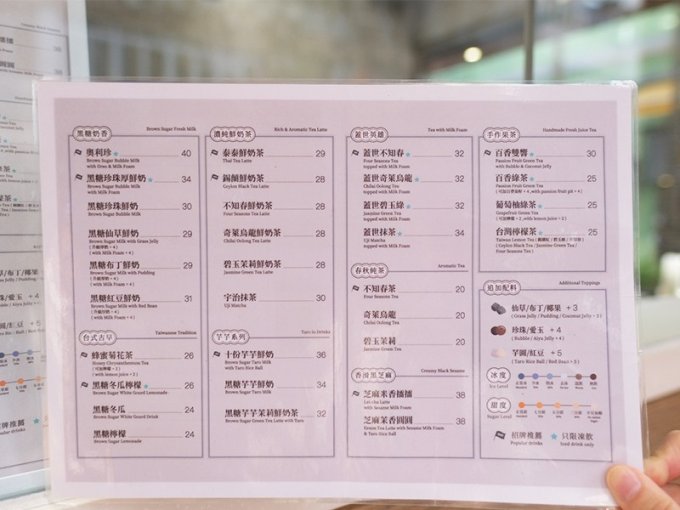 黑糖奶香 Brown Sugar Fresh Milk
奧利珍 40
Brown Sugar Bubble Milk
with Oreo & Milk Foam
黑糖珍珠厚鮮奶 34
Brown Sugar Bubble Milk
with Milk Foam
黑糖珍珠鮮奶 30
Brown Sugar Bubble Milk
黑糖仙草鮮奶 29
Brown Sugar Milk with Grass Jelly
黑糖布丁鮮奶 29
Brown Sugar Milk with Pudding
黑糖紅豆鮮奶 31
Brown Sugar Milk with Red Bean
台式古早 Taiwanese Tradition
蜂蜜菊花茶 26
Honey Chrysanthemum Tea
黑糖冬瓜檸檬 26
Brown Sugar White Gourd Lemonade
黑糖冬瓜 24
Brown Sugar White Gourd Drink
黑糖檸檬 24
Brown Sugar Lemonade
濃純鮮奶茶 Rich & Aromatic Tea Latte
泰泰鮮奶茶 29
Thai Tea Latte
鍋煮鮮奶茶 29
Ceylon Black Tea Latte
不知春鮮奶茶 28
Four Seasons Tea Latte
奇萊烏龍鮮奶茶 28
Chilai Oolong Tea Latte
碧玉茉莉鮮奶茶 28
Jasmine Green Tea Latte
宇治抹茶 30
Uji Matcha
芋芋系列 Taro in Drinks
十份芋芋鮮奶 36
Brown Sugar Milk with Taro
with Taro Rice Ball
黑糖芋芋鮮奶 34
Brown Sugar Milk with Taro
黑糖芋芋茉莉鮮奶茶 32
Brown Sugar Green Tea Latte with Taro
蓋世英雄 Tea with Milk Foam
蓋世不知春 32
Four Seasons Tea
topped with Milk Foam
蓋世奇萊烏龍 32
Chilai Oolong Tea
topped with Milk Foam
蓋世碧玉綠 32
Jasmine Green Tea
topped with Milk Foam
蓋世抹茶 34
Uji Matcha
topped with Milk Foam
春秋純茶 Aromatic Tea
不知春茶 20
Four Seasons Tea
奇萊烏龍 20
Chilai Oolong Tea
碧玉茉莉 20
Jasmine Green Tea
香滑黑芝麻 Creamy Black Sesame
芝麻米香擂擂 38
Lei cha Latte
with Sesame Milk Foam
芝麻茉香圓圓 38
Green Tea Latte with Sesame Milk Foam
& Taro Rice Ball
手作果茶 Handmade Fresh Juice Tea
百香雙響 30
Passion Fruit Green Tea
with Bubble & Coconut Jelly
百香綠茶 25
Passion Fruit Green Tea
葡萄柚綠茶 25
Grapefruit Green Tea
台灣檸檬茶 25
追加配料 Additional Toppings
仙草/布丁/椰果 +3
(Grass Jelly / Pudding / Coconut Jelly + 3)
珍珠/愛玉 +4
(Bubble / Aiyu Jelly + 4)
芋圓/紅豆 +5
(Taro Rice Ball / Red Bean + 5)
冰度
Ice Level
甜度
Sugar Level
招牌推薦
Popular drinks
只限凍飲
Iced drink only